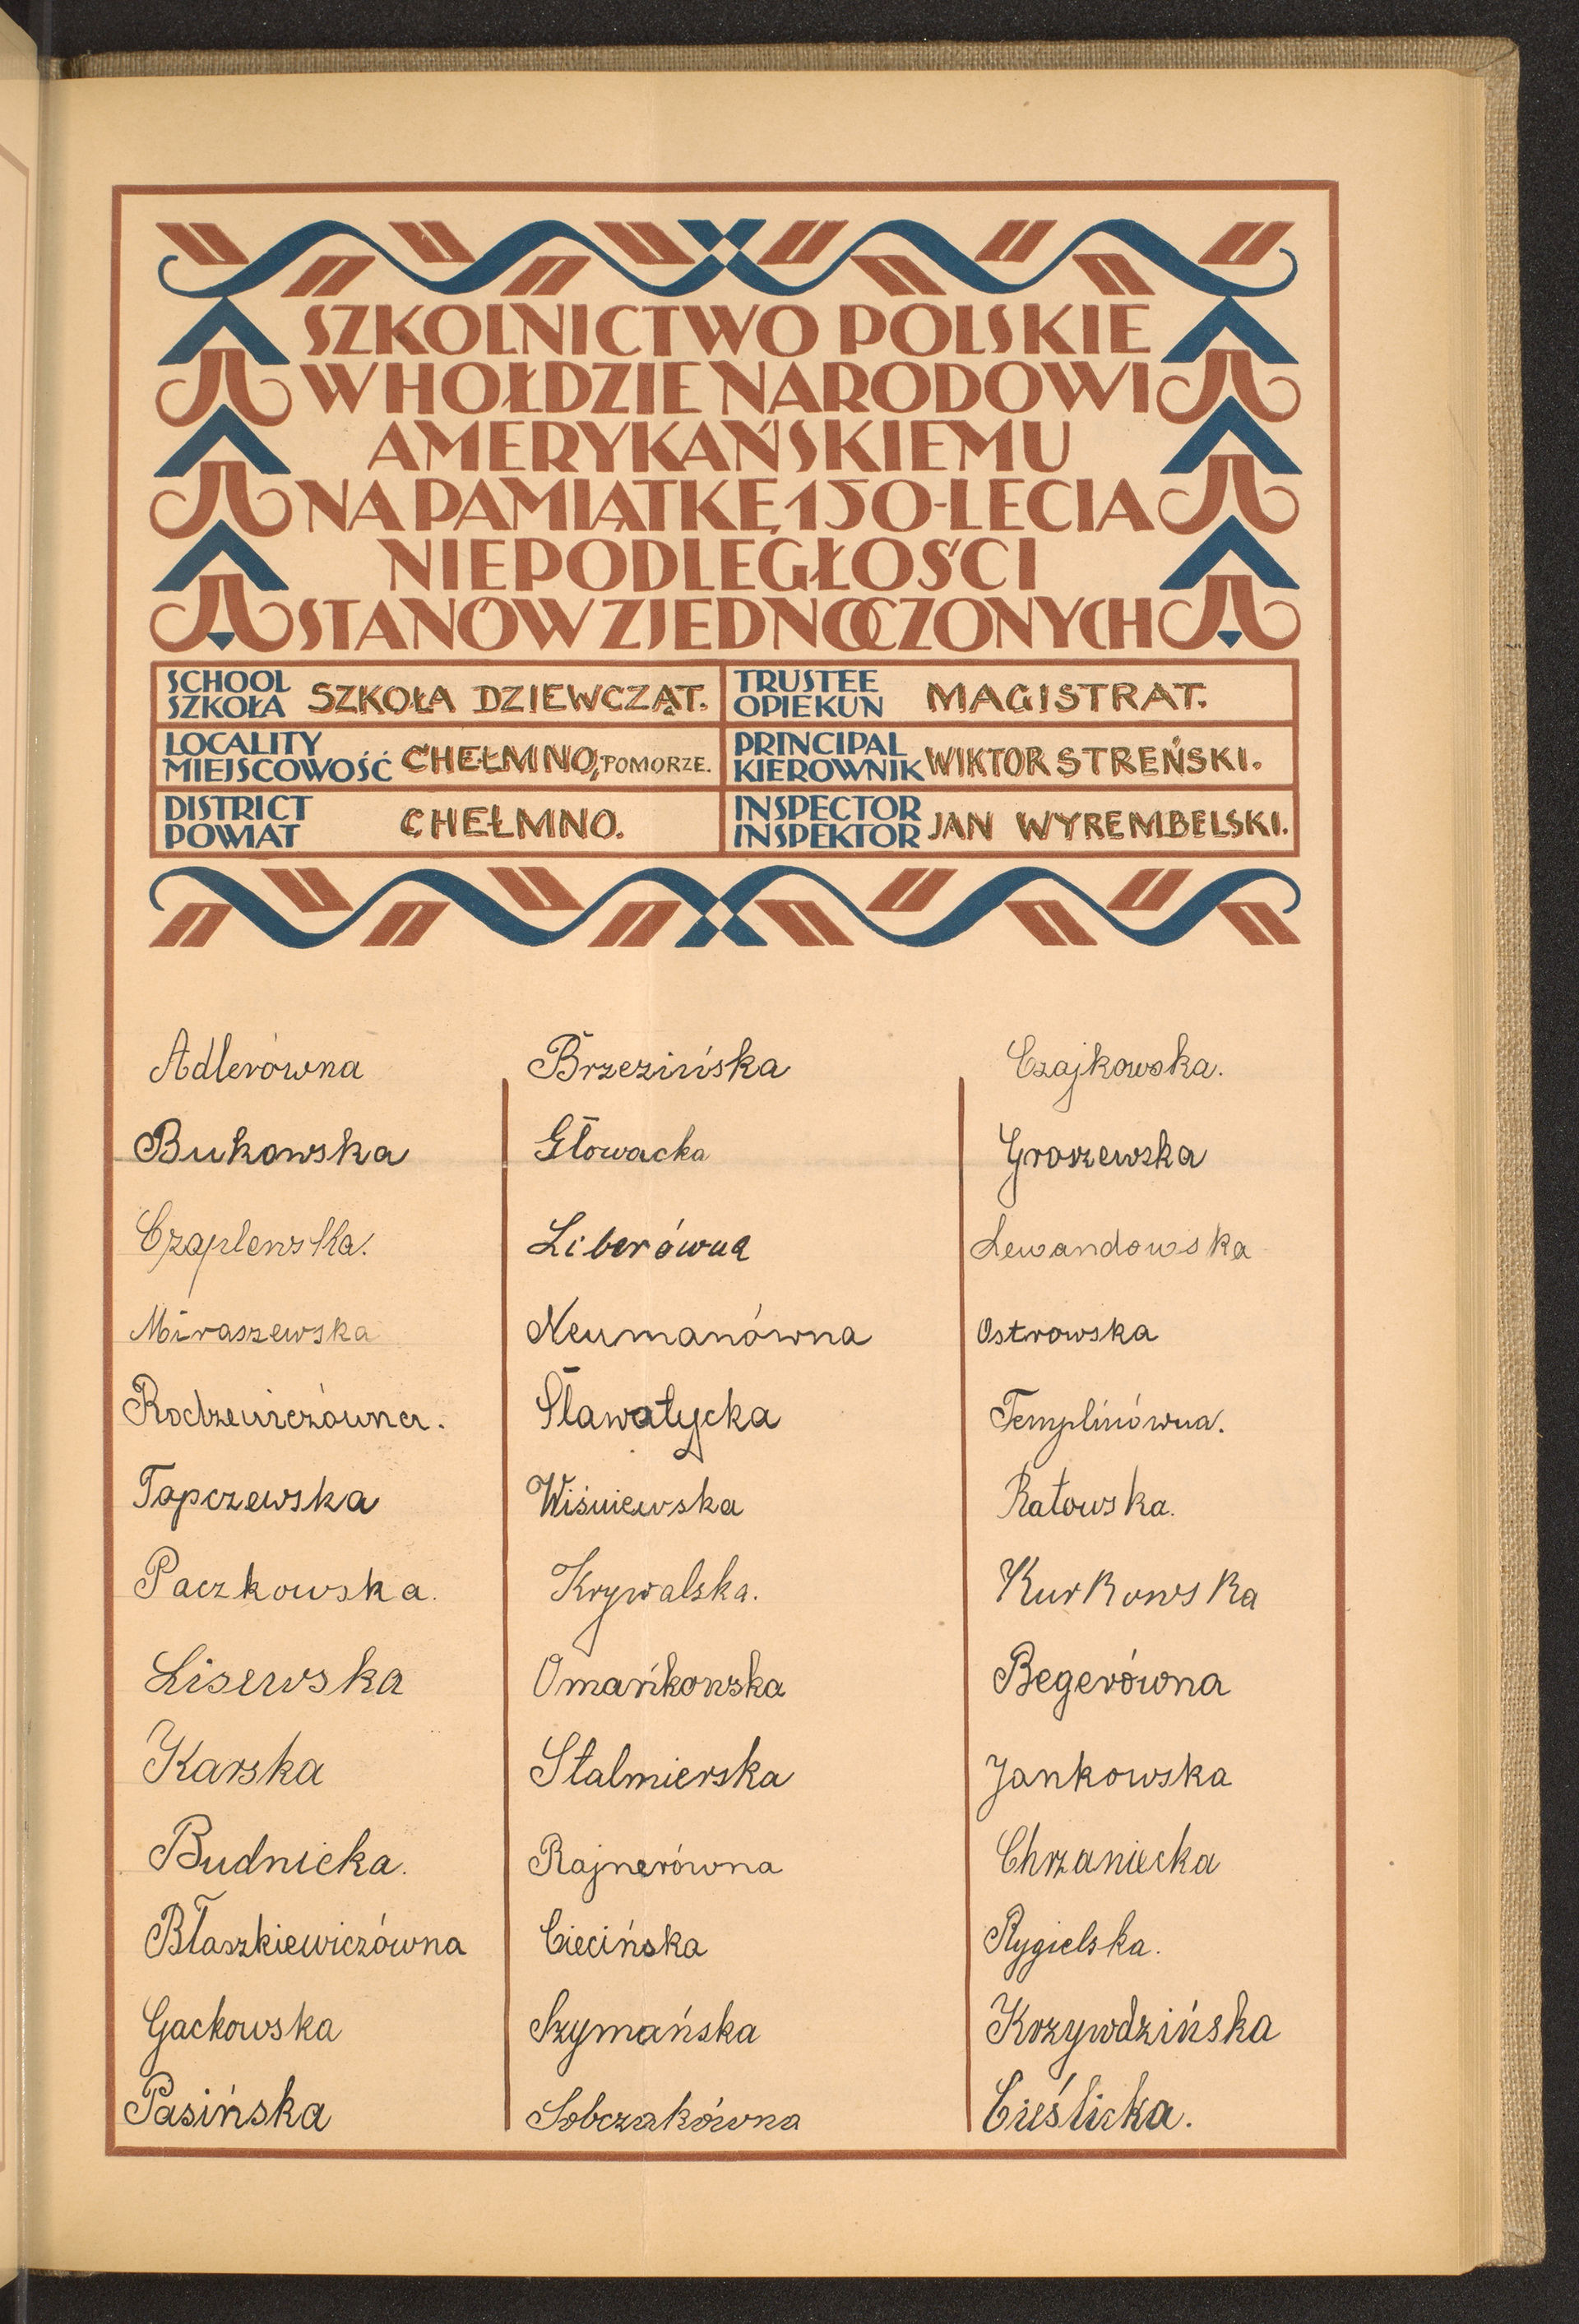 SZKOLNICTWO POLSKIE
W HOŁDZIE NARODOWI
AMERYKAŃSKIEMU
NA PAMIĄTKĘ 150-LECIA
NIEPODLEGŁOŚCI
STANÓW ZJEDNOCZONYCH
SCHOOL
SZKOŁA SZKOŁA DZIEWCZĄT.
TRUSTEE
OPIEKUN MAGISTRAT.
LOCALITY
MIEJSCOWOŚĆ CHEŁMNO, POMORZE.
PRINCIPAL
KIEROWNIK WIKTOR STREŃSKI.
DISTRICT
POWIAT CHEŁMNO.
INSPECTOR
INSPEKTOR JAN WYREMBELSKI.
Adlerówna
Bukowska
Czaplewska.
Miraszewska
Rodzewiczówna.
Tapczewska
Paczkowska.
Lisewska
Karska
Budnicka.
Błaszkiewiczówna
Gackowska
Pasińska
Brzezińska
Głowacka
Liberówna
Neumanówna
Sławatycka
Wiśniewska
Krywalska.
Omańkowska
Stalmierska
Rajnerówna
Ciecińska
Szymańska
Sobczakówna
Czajkowska.
Groszewska
Lewandowska
Ostrowska
Templinówna.
Ratowska.
Kurkowska
Begerówna
Jankowska
Chrzaniecka
Rygielska.
Krzywdzińska
Cieślicka.